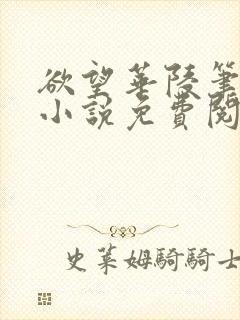 欲望華陵筆
小說免費閱
史萊姆騎騎士